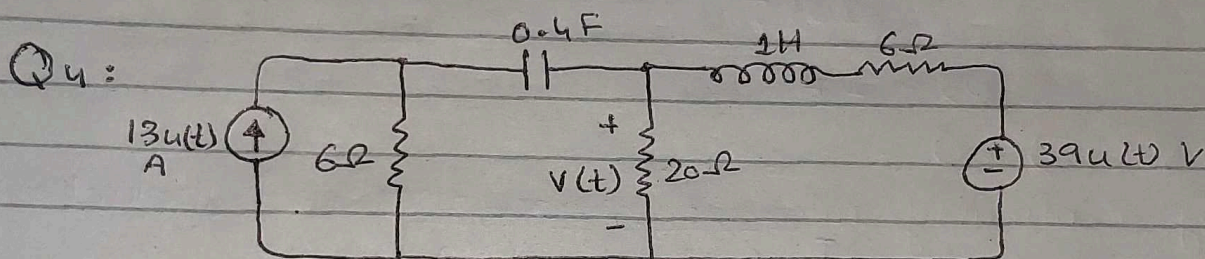 0.4F
1H 6Ω
Q4:
13u(t)
A
6Ω
+
V(t)
-
20Ω
+
-
39u(t) V